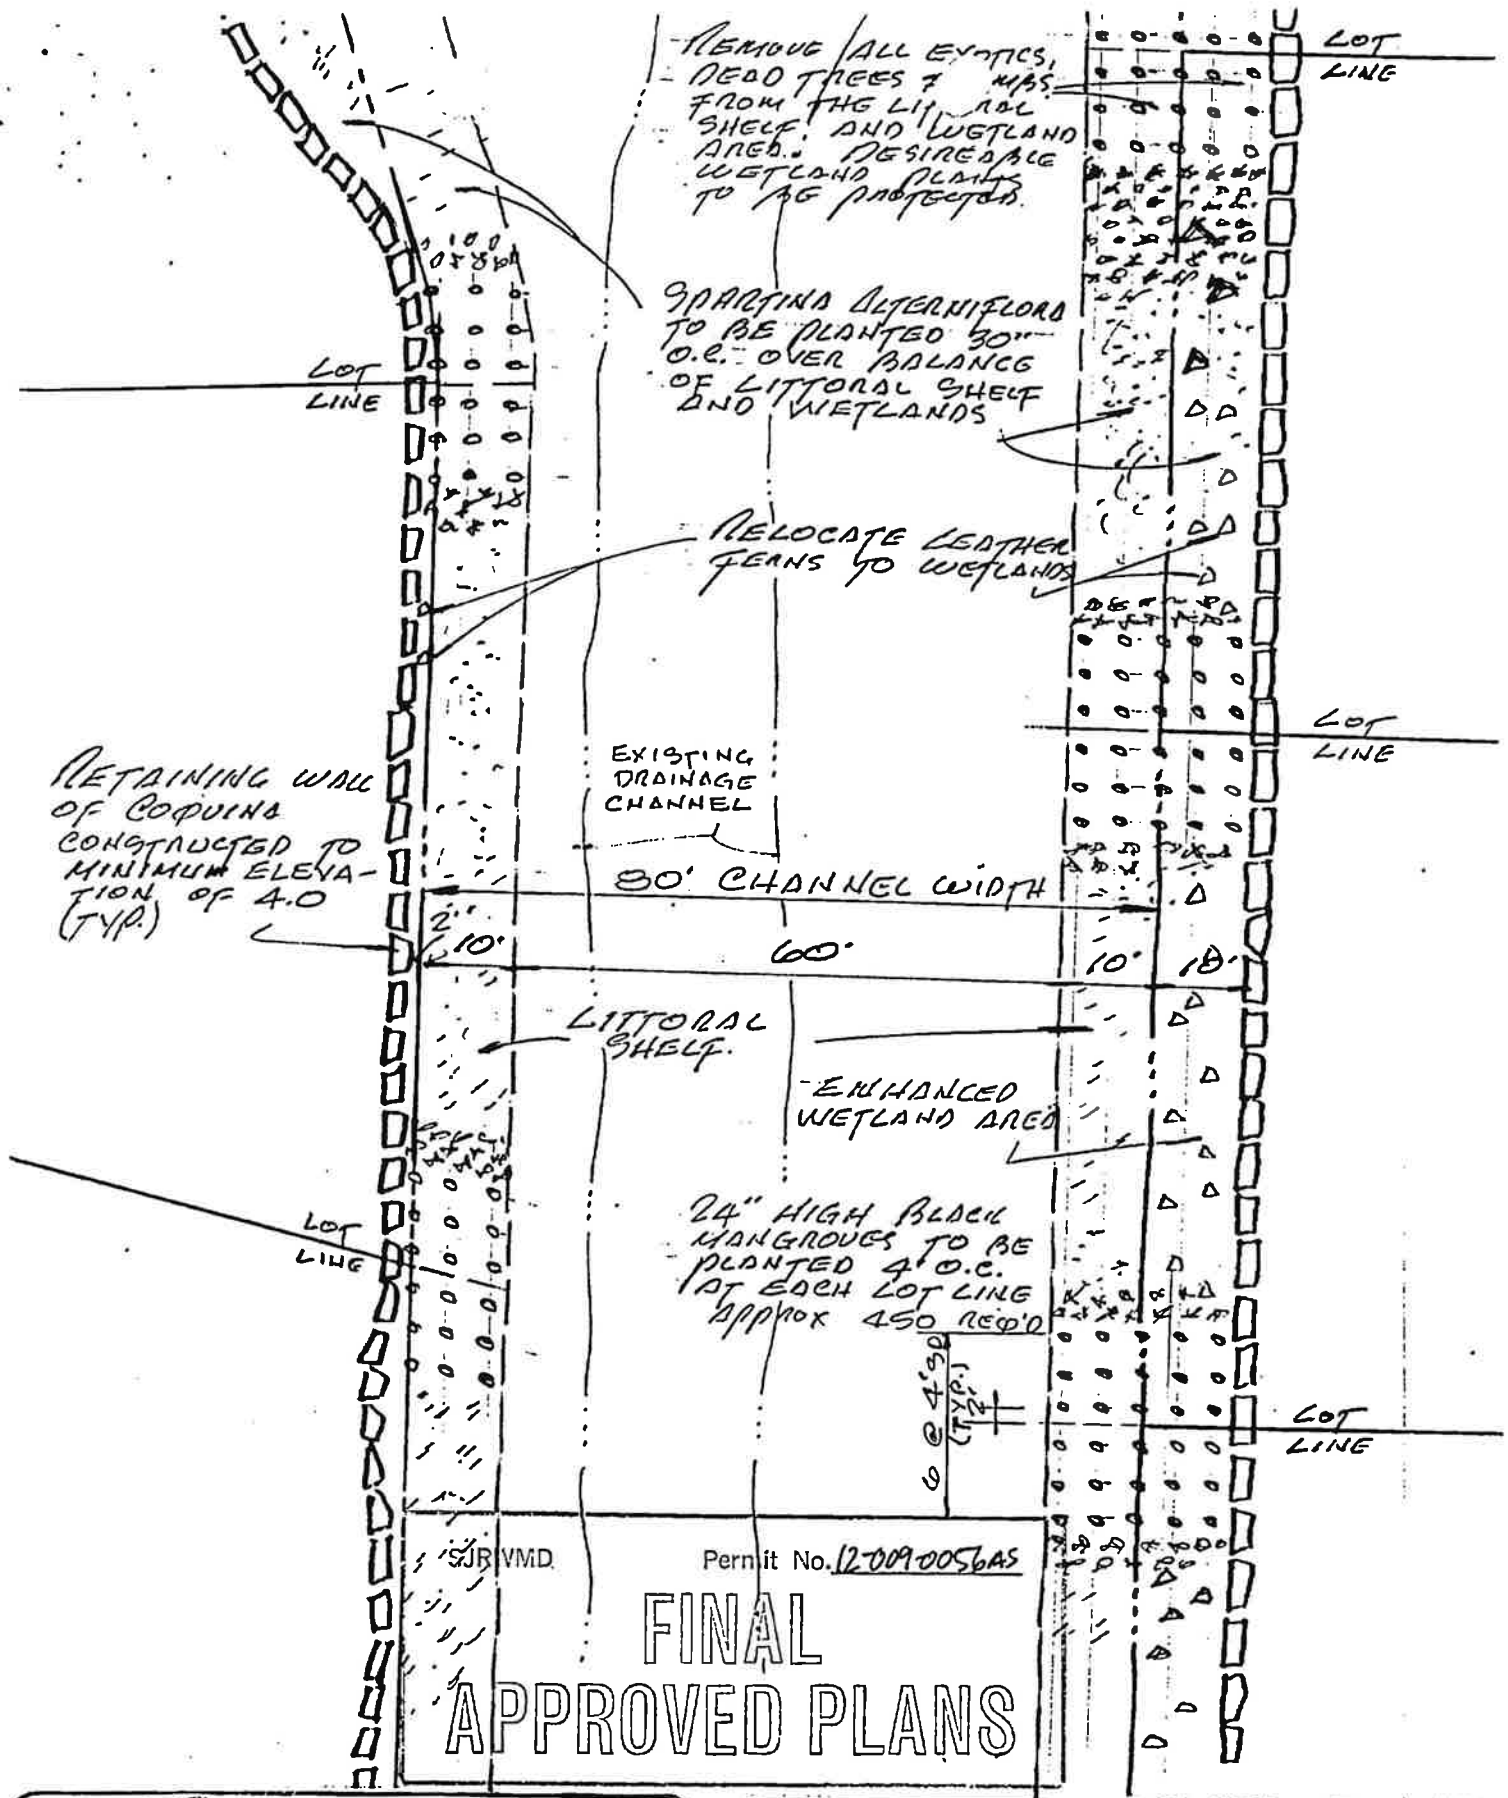 REMOVE ALL EXOTICS,
DEAD TREES &
FROM THE
SHELF, AND WETLAND
AREA. DESIREABLE
WETLAND PLANTS
TO BE PROTECTED.
LOT
LINE
SPARTINA ALTERNIFLORA
TO BE PLANTED 30"
O.C. OVER BALANCE
OF LITTORAL SHELF
AND WETLANDS
LOT
LINE
RELOCATE LEATHER
FERNS TO WETLANDS
LOT
LINE
RETAINING WALL
OF COQUINA
CONSTRUCTED TO
MINIMUM ELEVA-
TION OF 4.0
(TYP.)
EXISTING
DRAINAGE
CHANNEL
80' CHANNEL WIDTH
2'
10' 60' 10' 10'
LITTORAL
SHELF.
ENHANCED
WETLAND AREA
24" HIGH BLACK
MANGROVES TO BE
PLANTED 4' O.C.
AT EACH LOT LINE
APPROX 450 REQ'D
LOT
LINE
6 @ 4'
(TYP.)
2'
LOT
LINE
SJRWMD Permit No. 12-009-0056AS
FINAL
APPROVED PLANS